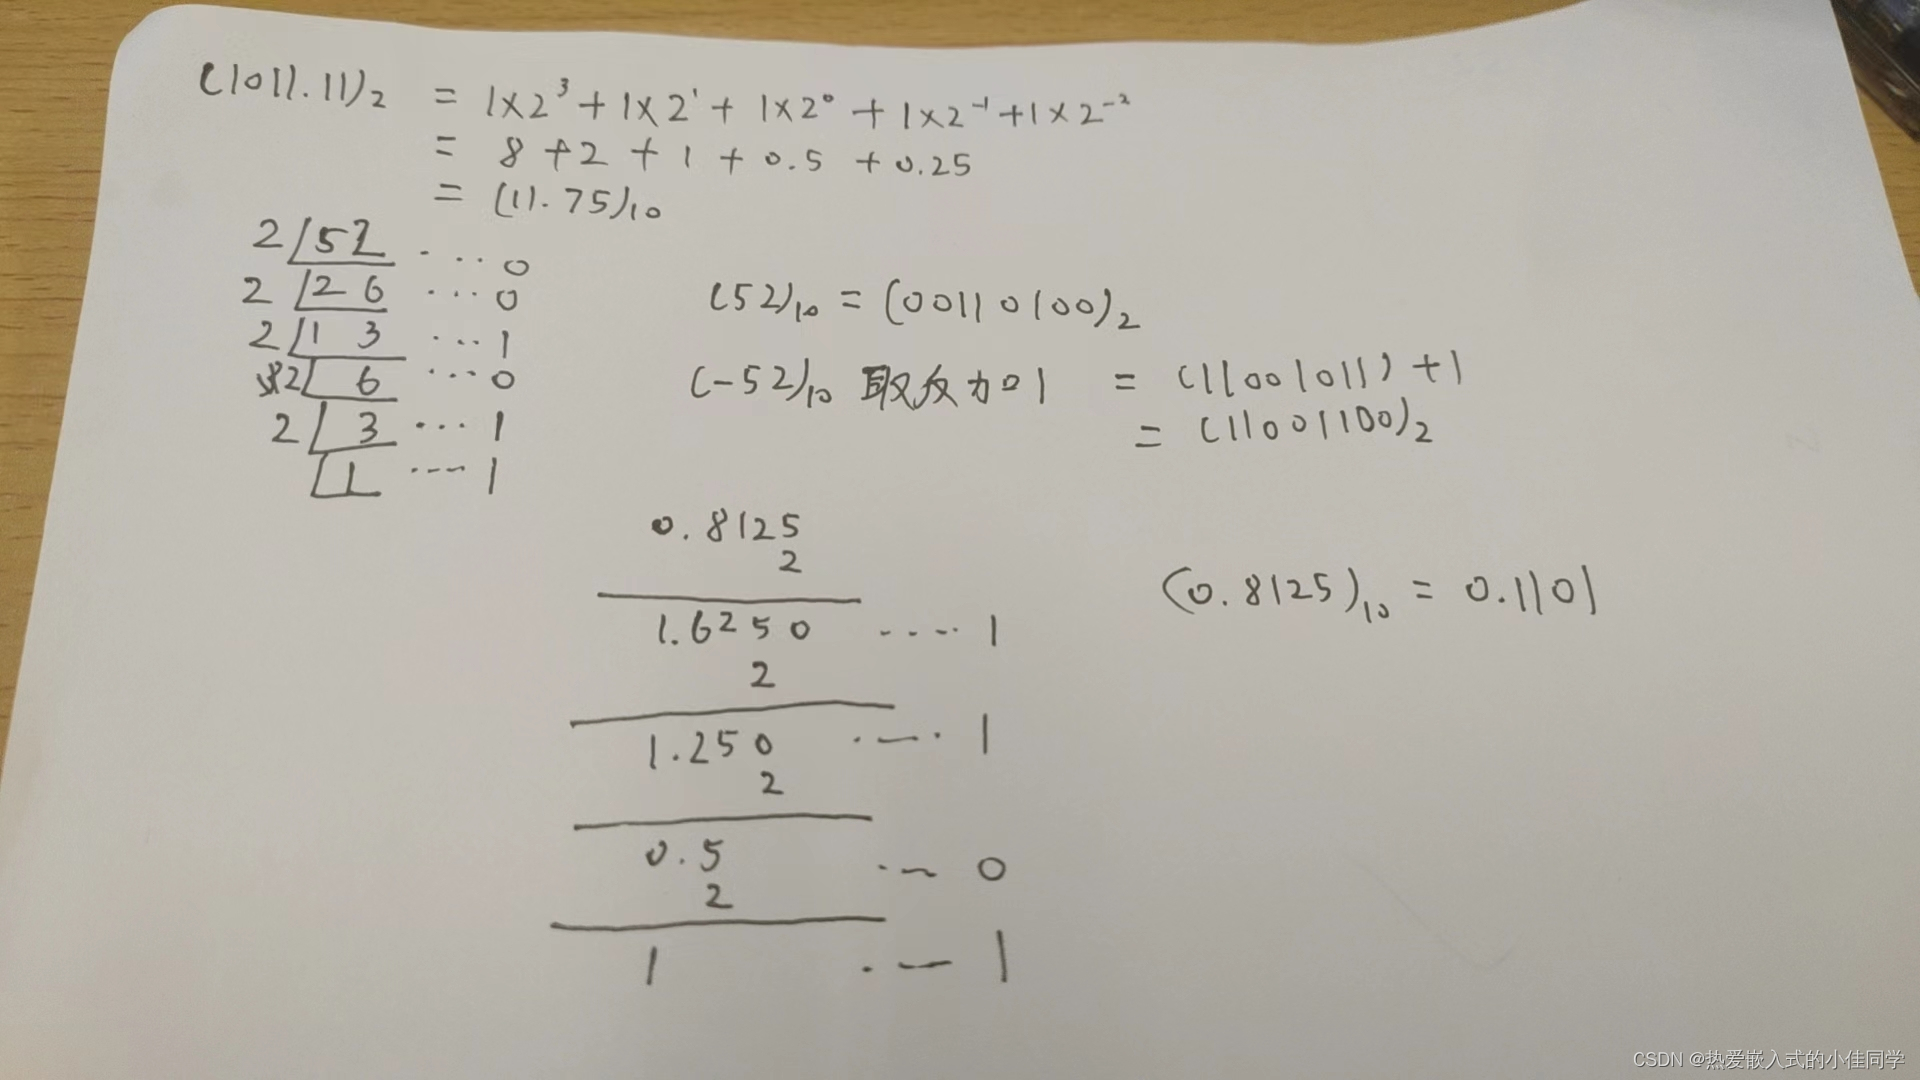 (1011.11)₂ = 1×2³ + 1×2¹ + 1×2⁰ + 1×2⁻¹ + 1×2⁻²
= 8 + 2 + 1 + 0.5 + 0.25
= (11.75)₁₀
2 52 ... 0
2 26 ... 0
2 13 ... 1
2 6 ... 0
2 3 ... 1
1 ... 1
(52)₁₀ = (00110100)₂
(-52)₁₀ 取反加1 = (11001011) + 1
= (11001100)₂
0.8125
2
1.6250 .... 1
2
1.250 .-. 1
2
0.5 .- 0
2
1 .- 1
(0.8125)₁₀ = 0.1101
CSDN @热爱嵌入式的小佳同学